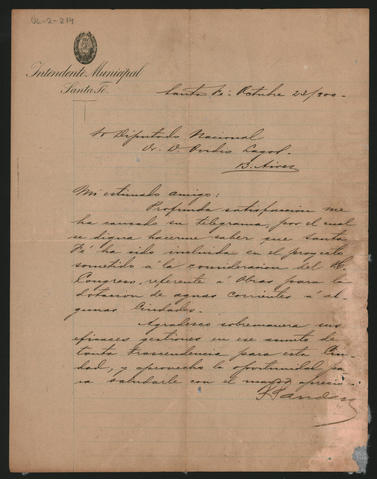 OL-2-274
Intendente Municipal
Santa Fé
Santa Fé. Octubre 23/900.
Sr Diputado Nacional
Dr. D Ovidio Lagos.
B. Aires
Mi estimado amigo:
Profunda satisfaccion me
ha causado su telegrama, por el cual
se digna hacerme saber que Santa
Fé ha sido incluida en el proyecto
sometido á la consideracion del H.
Congreso, referente á Obras para la
dotacion de aguas corrientes á al-
gunas Ciudades.
Agradezco sobremanera sus
eficaces gestiones en ese asunto de
tanta trascendencia para esta Ciu-
dad, y aprovecho la oportunidad pa-
ra saludarle con el mayor aprecio.